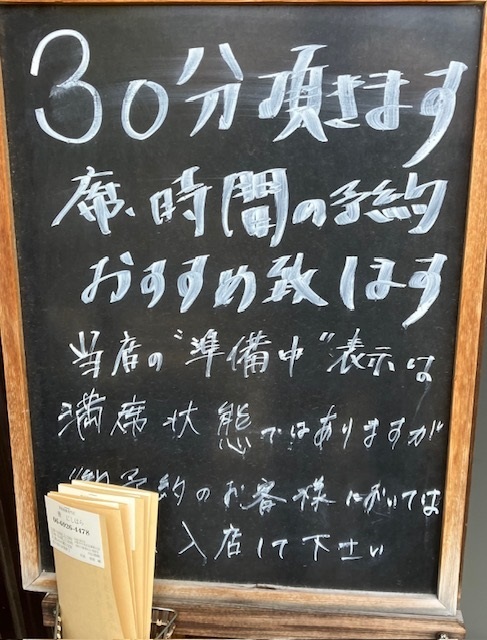 30分頂きます
席、時間の予約
おすすめ致します
当店の"準備中"表示は
満席状態ではありますが
御予約のお客様においては
入店して下さい
06-6926-4478